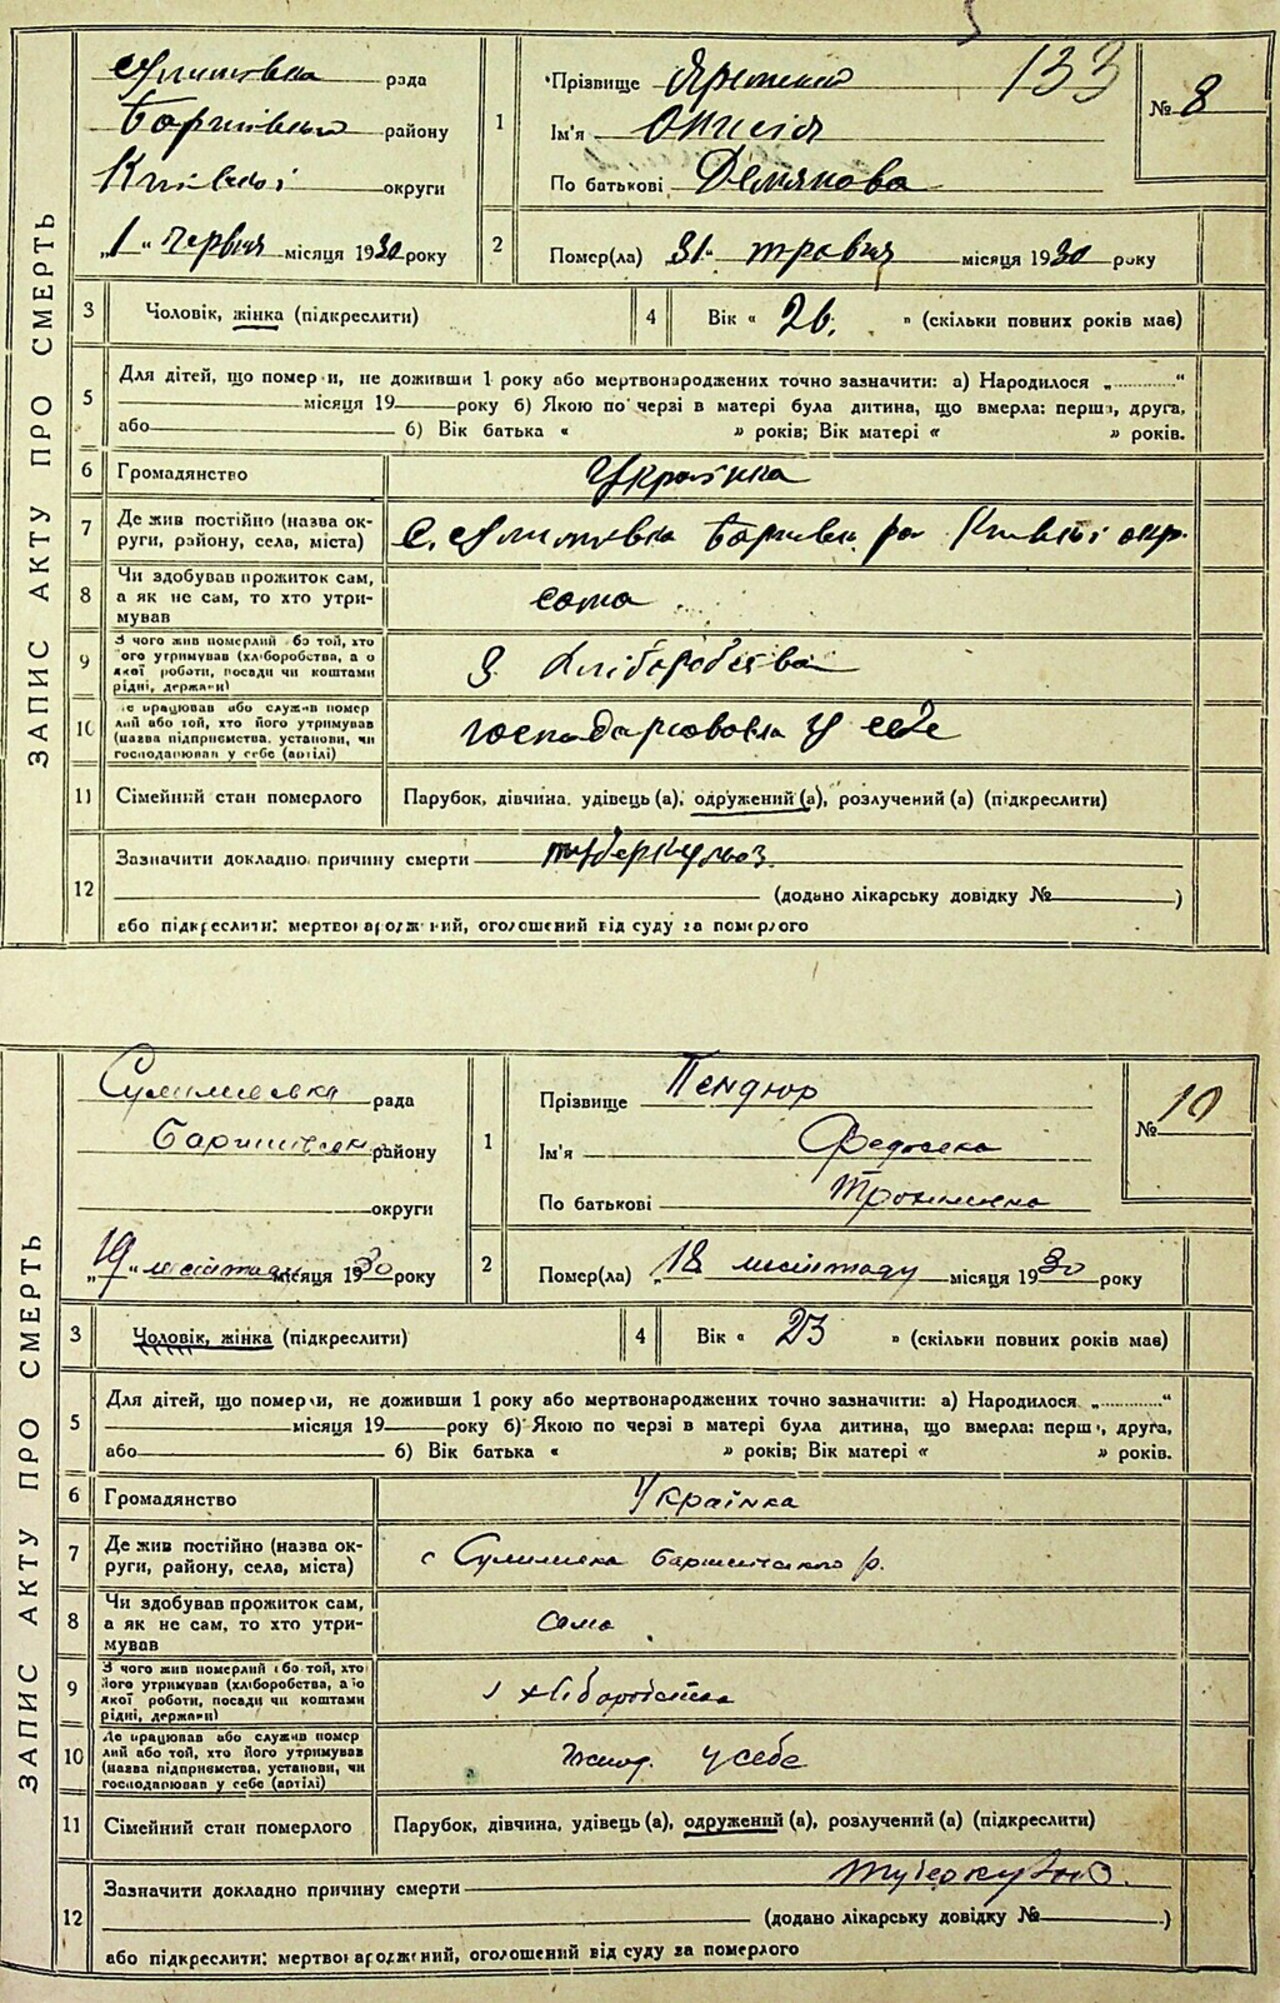 ЗАПИС АКТУ ПРО СМЕРТЬ
рада
району
округи
„1“ червня місяця 1930 року
1
Прізвище Яременко 133
Ім'я Онисія
По батькові Демянова
№ 8
2
Помер(ла) 31 травня місяця 1930 року
3 Чоловік, жінка (підкреслити)
4 Вік « 26. » (скільки повних років мав)
5
Для дітей, що померли, не доживши 1 року або мертвонароджених точно зазначити: а) Народилося „............“
місяця 19 року б) Якою по черзі в матері була дитина, що вмерла: перша, друга,
або б) Вік батька « » років; Вік матері « » років.
6 Громадянство Українка
7 Де жив постійно (назва ок-
руги, району, села, міста) с.
8 Чи здобував прожиток сам,
а як не сам, то хто утри-
мував
сама
9 З чого жив померлий або той, хто
його утримував (хліборобства, або
якої роботи, посади чи коштами
рідні, держави)
З хліборобства
10 Де працював або служив помер
лий або той, хто його утримував
(назва підприємства, установи, чи
господарював у себе (артілі)
господарювала у себе
11 Сімейний стан померлого Парубок, дівчина, удівець (а), одружений (а), розлучений (а) (підкреслити)
12 Зазначити докладно причину смерти туберкульоз
(додано лікарську довідку № )
або підкреслити: мертвонароджений, оголошений від суду за померлого
ЗАПИС АКТУ ПРО СМЕРТЬ
Сулимовка рада
району
округи
„19“ листопаду місяця 1930 року
1
Прізвище Пендюр
Ім'я Федоска
По батькові Трохимовна
№ 10
2
Помер(ла) „18 листопаду місяця 1930 року
3 Чоловік, жінка (підкреслити)
4 Вік « 23 » (скільки повних років мав)
5
Для дітей, що померли, не доживши 1 року або мертвонароджених точно зазначити: а) Народилося „............“
місяця 19 року б) Якою по черзі в матері була дитина, що вмерла: перша, друга,
або б) Вік батька « » років; Вік матері « » років.
6 Громадянство Українка
7 Де жив постійно (назва ок-
руги, району, села, міста) с р.
8 Чи здобував прожиток сам,
а як не сам, то хто утри-
мував
сама
9 З чого жив померлий або той, хто
його утримував (хліборобства, або
якої роботи, посади чи коштами
рідні, держави)
з хліборобства
10 Де працював або служив помер
лий або той, хто його утримував
(назва підприємства, установи, чи
господарював у себе (артілі)
у себе
11 Сімейний стан померлого Парубок, дівчина, удівець (а), одружений (а), розлучений (а) (підкреслити)
12 Зазначити докладно причину смерти туберкульоз.
(додано лікарську довідку № )
або підкреслити: мертвонароджений, оголошений від суду за померлого